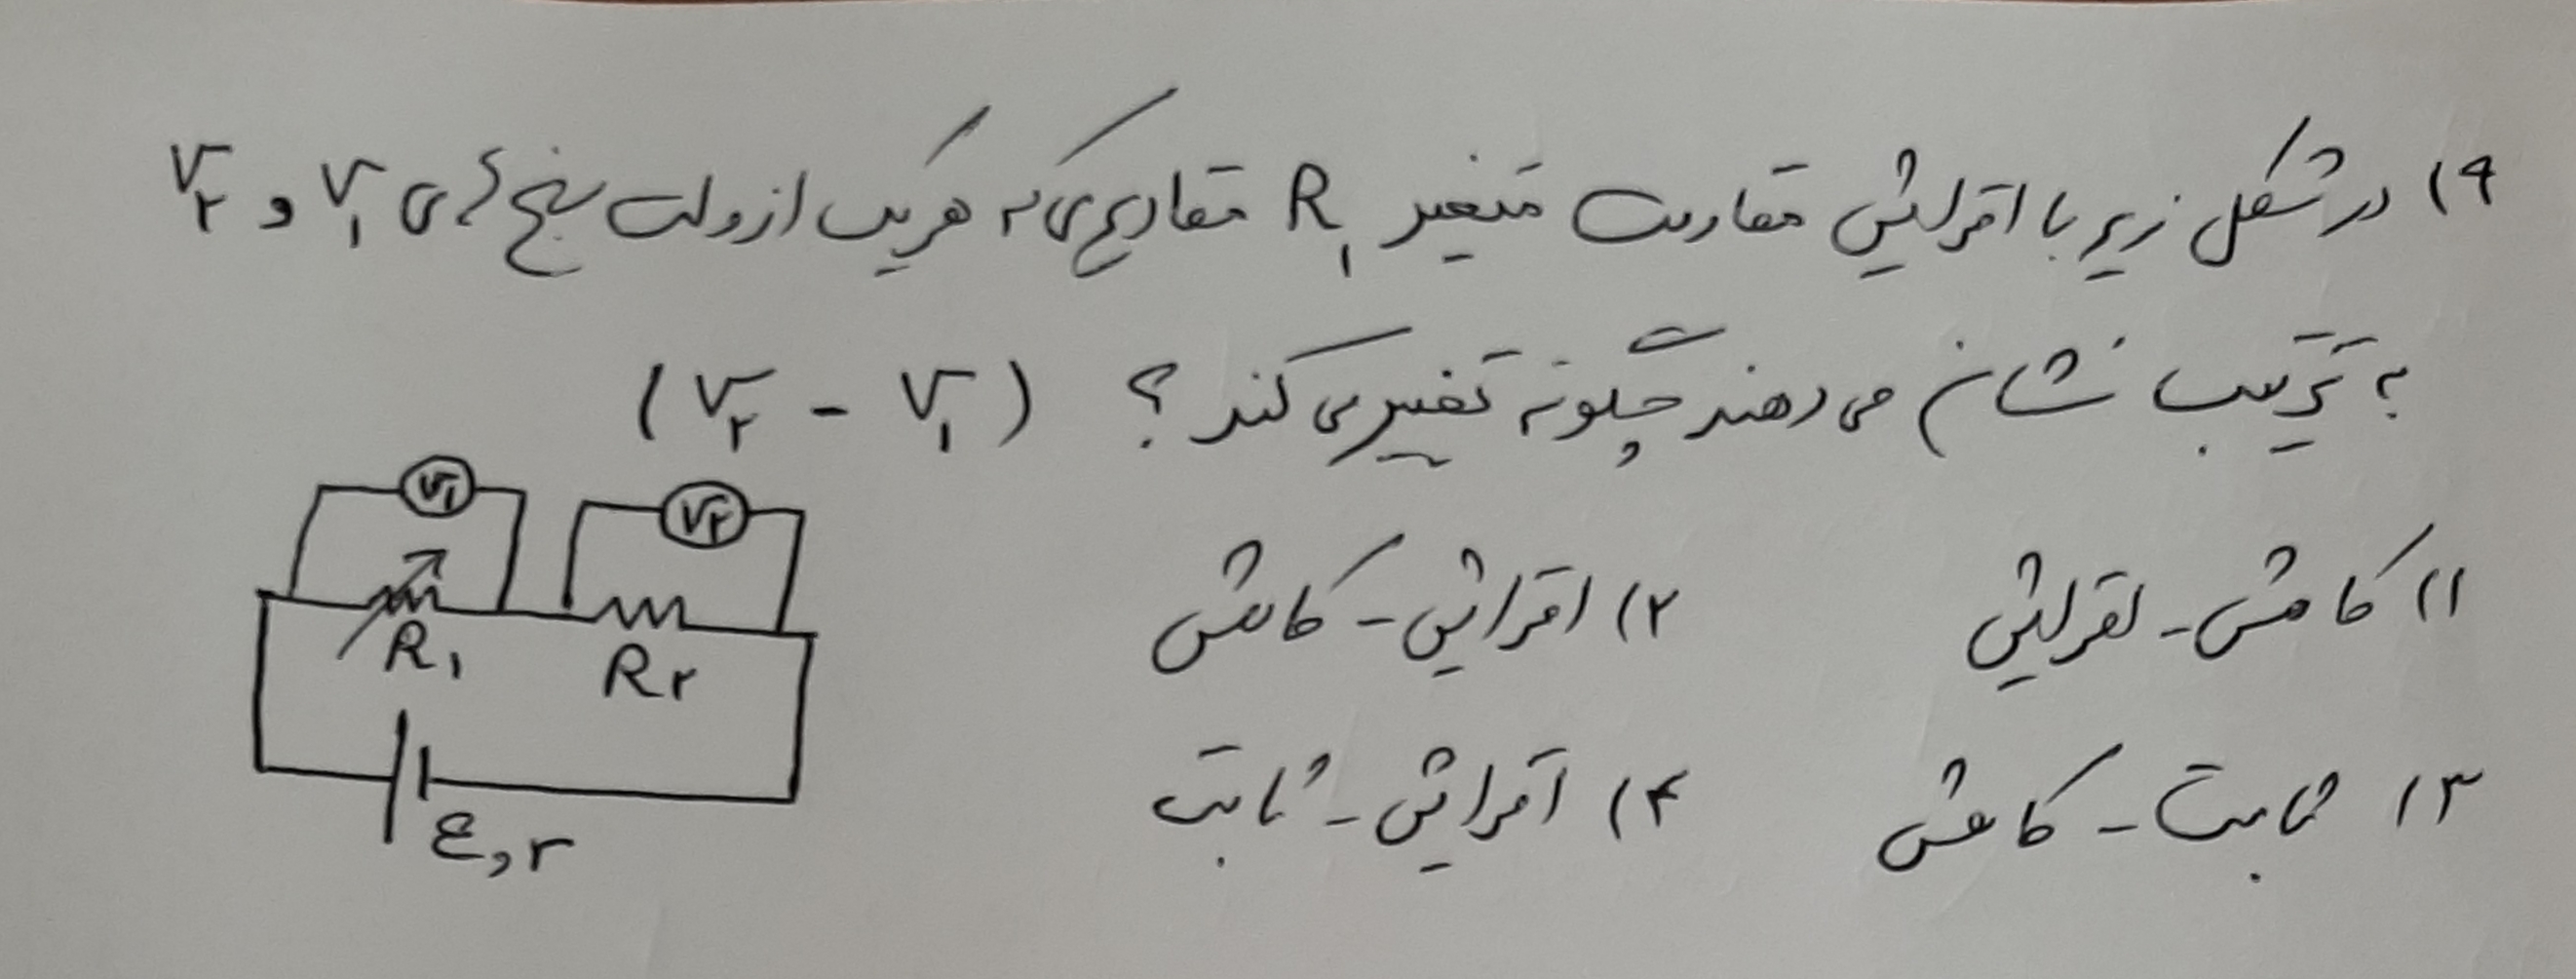 ۱۹) در شکل زیر با افزایش مقاومت متغیر R۱ مقادیری که هریک از ولت سنج های V۱ و V۲
به ترتیب نشان می دهند چگونه تغییر می کند؟ (V۱ - V۲)
V۱ V۲
۱) کاهش - افزایش ۲) افزایش - کاهش
R۱ R۲
۳) ثابت - کاهش ۴) افزایش - ثابت
ε, r